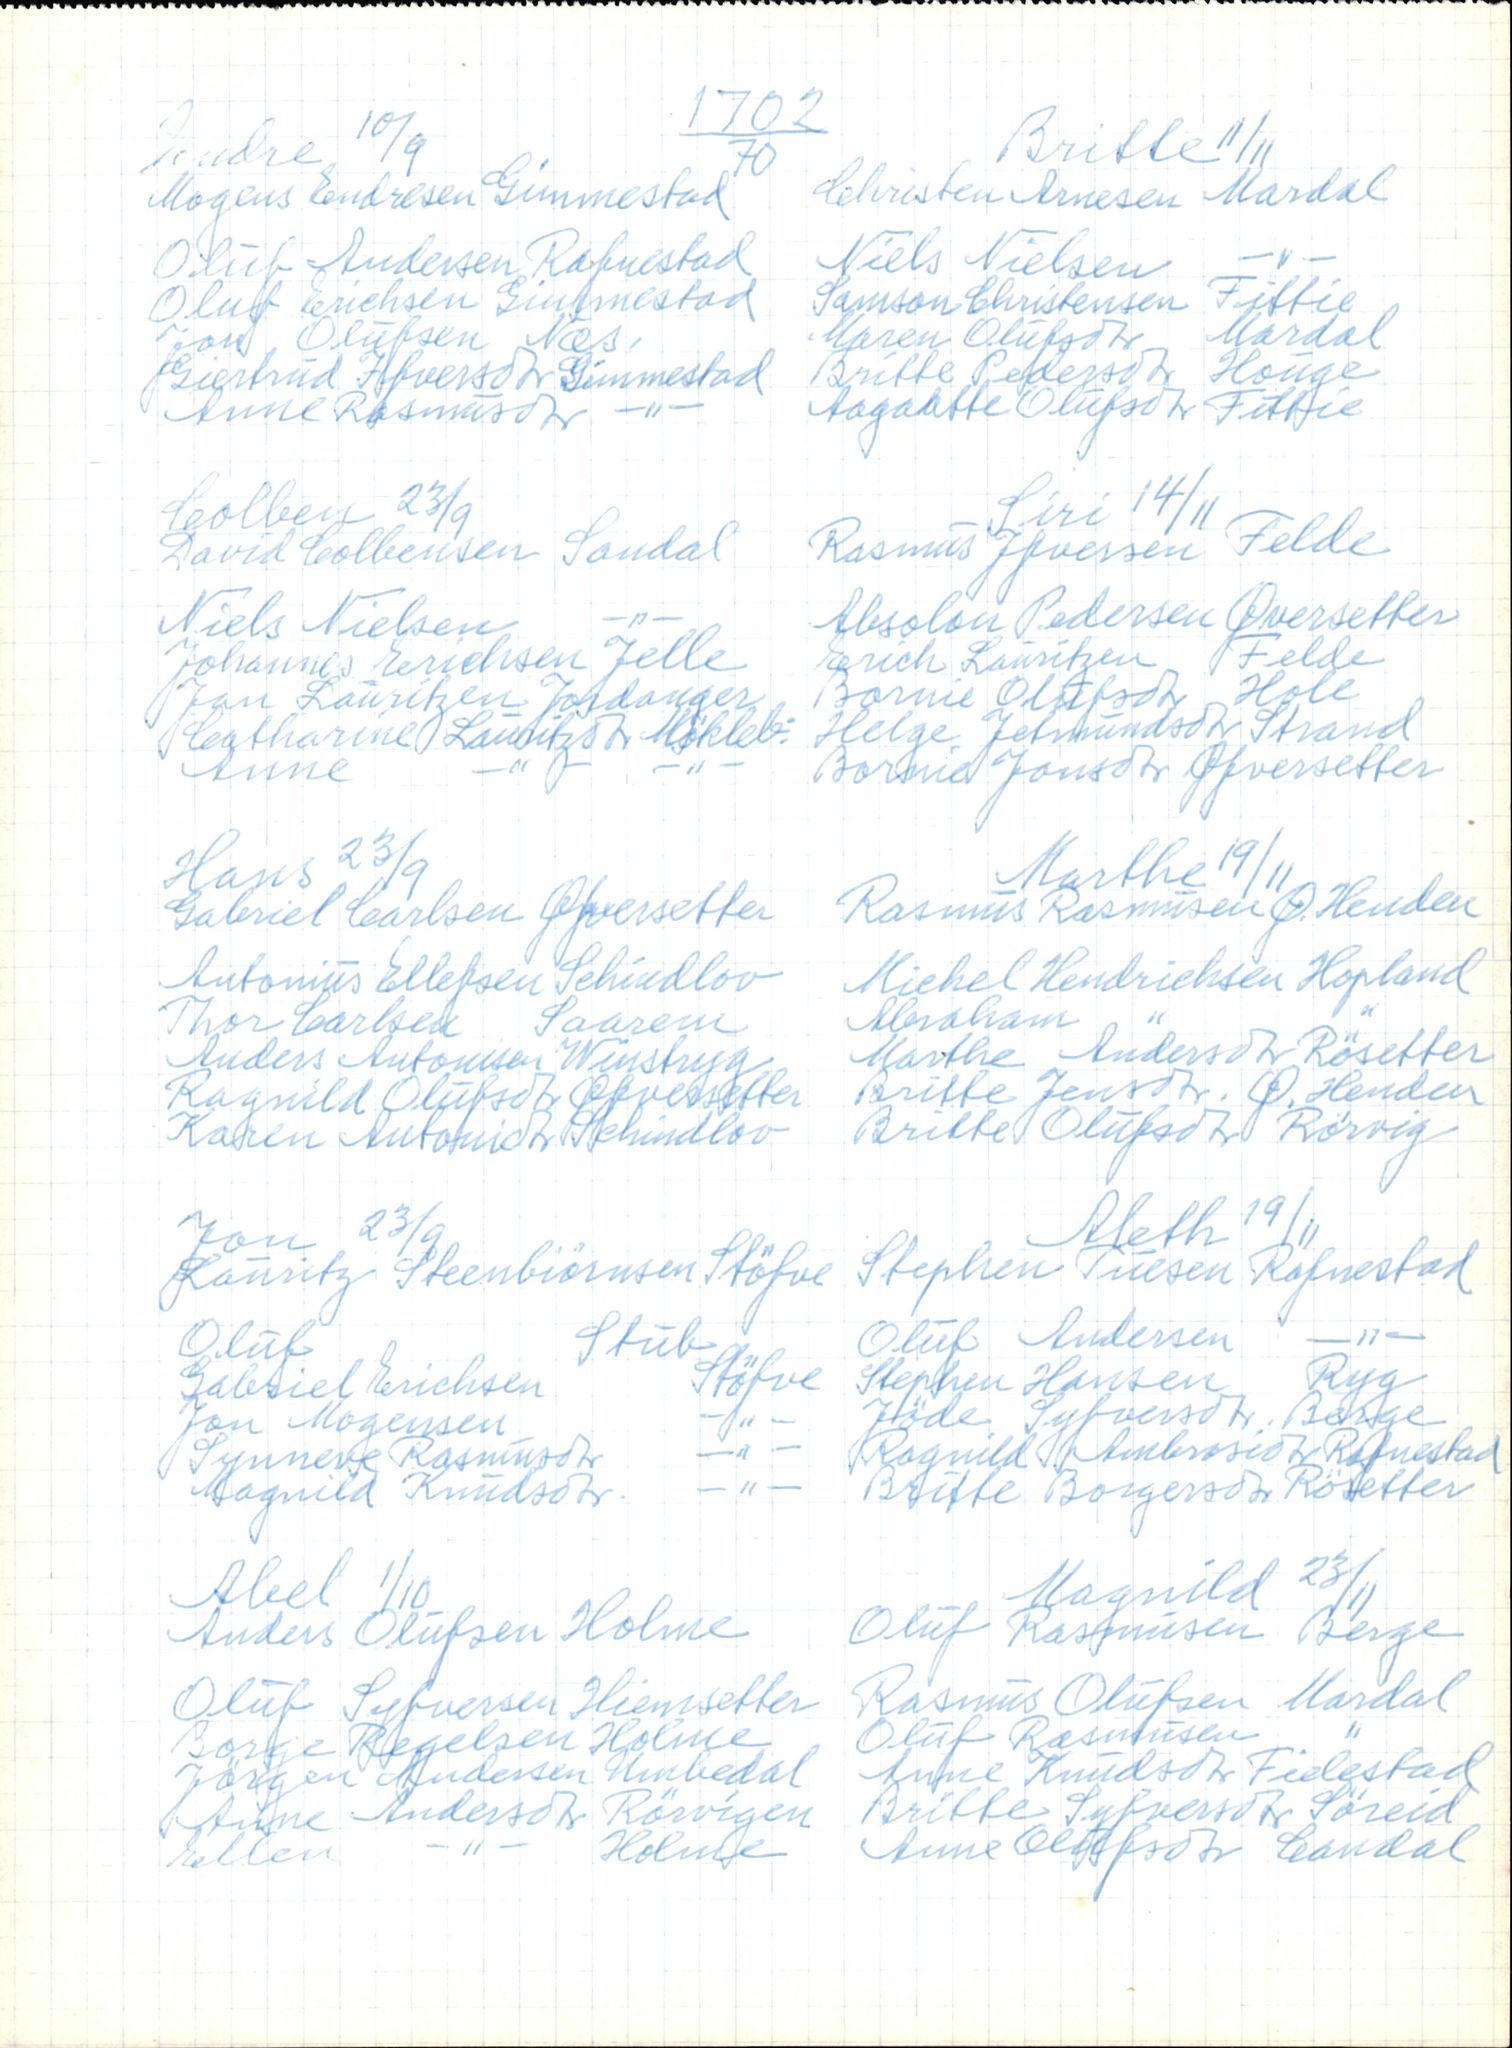 1702
70
Endre 10/9
Mogens Endresen Gimmestad
Oluf Andersen Rafnestad
Oluf Erichsen Gimmestad
Jon Olufsen Næs
Giertrud Ifversdtr Gimmestad
Anne Rasmusdtr -"-
Colben 23/9
David Colbensen Sandal
Niels Nielsen -"-
Johannes Erichsen Jelle
Jan Lauritzen Jordanger
Catharine Lauritzdtr Mökleb:
Anne -"- -"-
Hans 23/9
Gabriel Carlsen Øfversetter
Antonius Ellefsen Schindlov
Thor Carlsen Saarem
Anders Antonisen Winstryg
Ragnild Olufsdtr Øfversetter
Karen Antonidtr Schindlov
Jon 23/9
Lauritz Steenbiörnsen Stöfve
Oluf Stub
Gabriel Erichsen Stöfve
Jon Mogensen -"-
Synneve Rasmusdtr -"-
Magnild Knudsdtr. -"-
Abel 1/10
Anders Olufsen Holme
Oluf Syfversen Hiemsetter
Borge Regelsen Holme
Jörgen Andersen Umbedal
Anne Andersdtr Rörvigen
Ellen -"- Holme
Britte 11/11
Christen Arnesen Mardal
Niels Nielsen -"-
Samson Christensen Fittie
Maren Olufsdtr Mardal
Britte Pedersdtr Houge
Aagahtte Olufsdtr Fittie
Siri 14/11
Rasmus Ifversen Felde
Absolon Pedersen Øversetter
Erich Lauritzen Felde
Bornie Olufsdtr Hole
Helge Jetmundsdtr Strand
Bornie Jonsdtr Øfversetter
Marthe 19/11
Rasmus Rasmusen Ø. Henden
Michel Hendrichsen Hopland
Abraham " "
Marthe Andersdtr Rösetter
Britte Jensdtr. Ø. Henden
Britte Olufsdtr Rörvig
Aleth 19/11
Stephen Tuesen Rafnestad
Oluf Andersen -"-
Stephen Hansen Ryg
Jöde Syfversdtr. Berge
Ragnild Ambrosidtr Rafnestad
Britte Borgersdtr Rösetter
Magnild 23/11
Oluf Rasmusen Berge
Rasmus Olufsen Mardal
Oluf Rasmusen "
Anne Knudsdtr Fielestad
Britte Syfversdtr Söreid
Anne Olufsdtr Candal